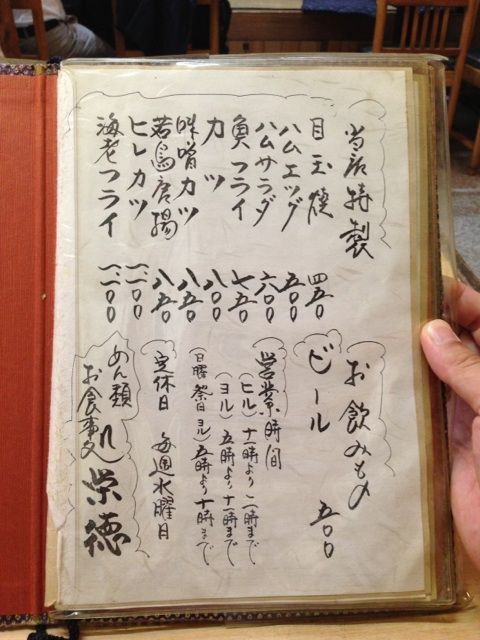 当店特製
目玉焼 四五〇
ハムエッグ 五〇〇
ハムサラダ 六〇〇
魚フライ 七五〇
カツ 八〇〇
味噌カツ 八五〇
若鳥唐揚 八五〇
ヒレカツ
海老フライ
お飲みもの
ビール 五〇〇
営業時間
(ヒル) 十一時より二時まで
(ヨル) 五時より十一時まで
(日曜祭日ヨル) 五時より十時まで
定休日 毎週水曜日
めん類
お食事処
栄徳